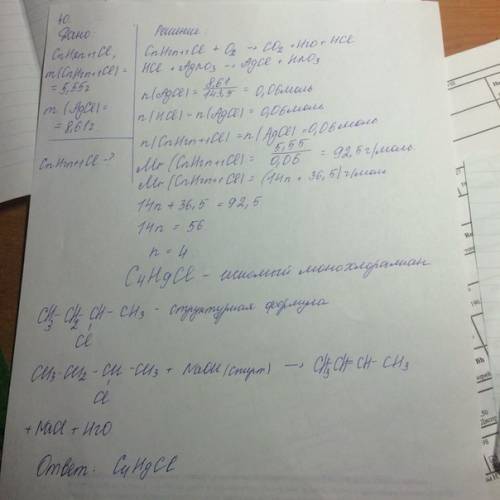 40.
Дано:
CnH2n+1Cl,
m(CnH2n+1Cl)=
= 5,55г
m (AgCl)=
= 8,61г
CnH2n+1Cl -?
Решение:
CnH2n+1Cl + O2 → CO2 + H2O + HCl
HCl + AgNO3 → AgCl + HNO3
n(AgCl) = 8,61/143,5 = 0,06моль
n(HCl) - n(AgCl) = 0,06моль
n(CnH2n+1Cl) = n(AgCl) = 0,06моль
Mr(CnH2n+1Cl) = 5,55/0,06 = 92,5 г/моль.
Mr(CnH2n+1Cl) = (14n + 36,5) г/моль
14n + 36,5 = 92,5
14n = 56
n = 4
C4H9Cl - искомый монохлоралкан
CH3-CH2-CH-CH3 - структурная формула
Cl
CH3-CH2-CH-CH3 + NaOH(спирт) → CH3CH=CH-CH3
Cl
+ NaCl + H2O
Ответ: C4H9Cl